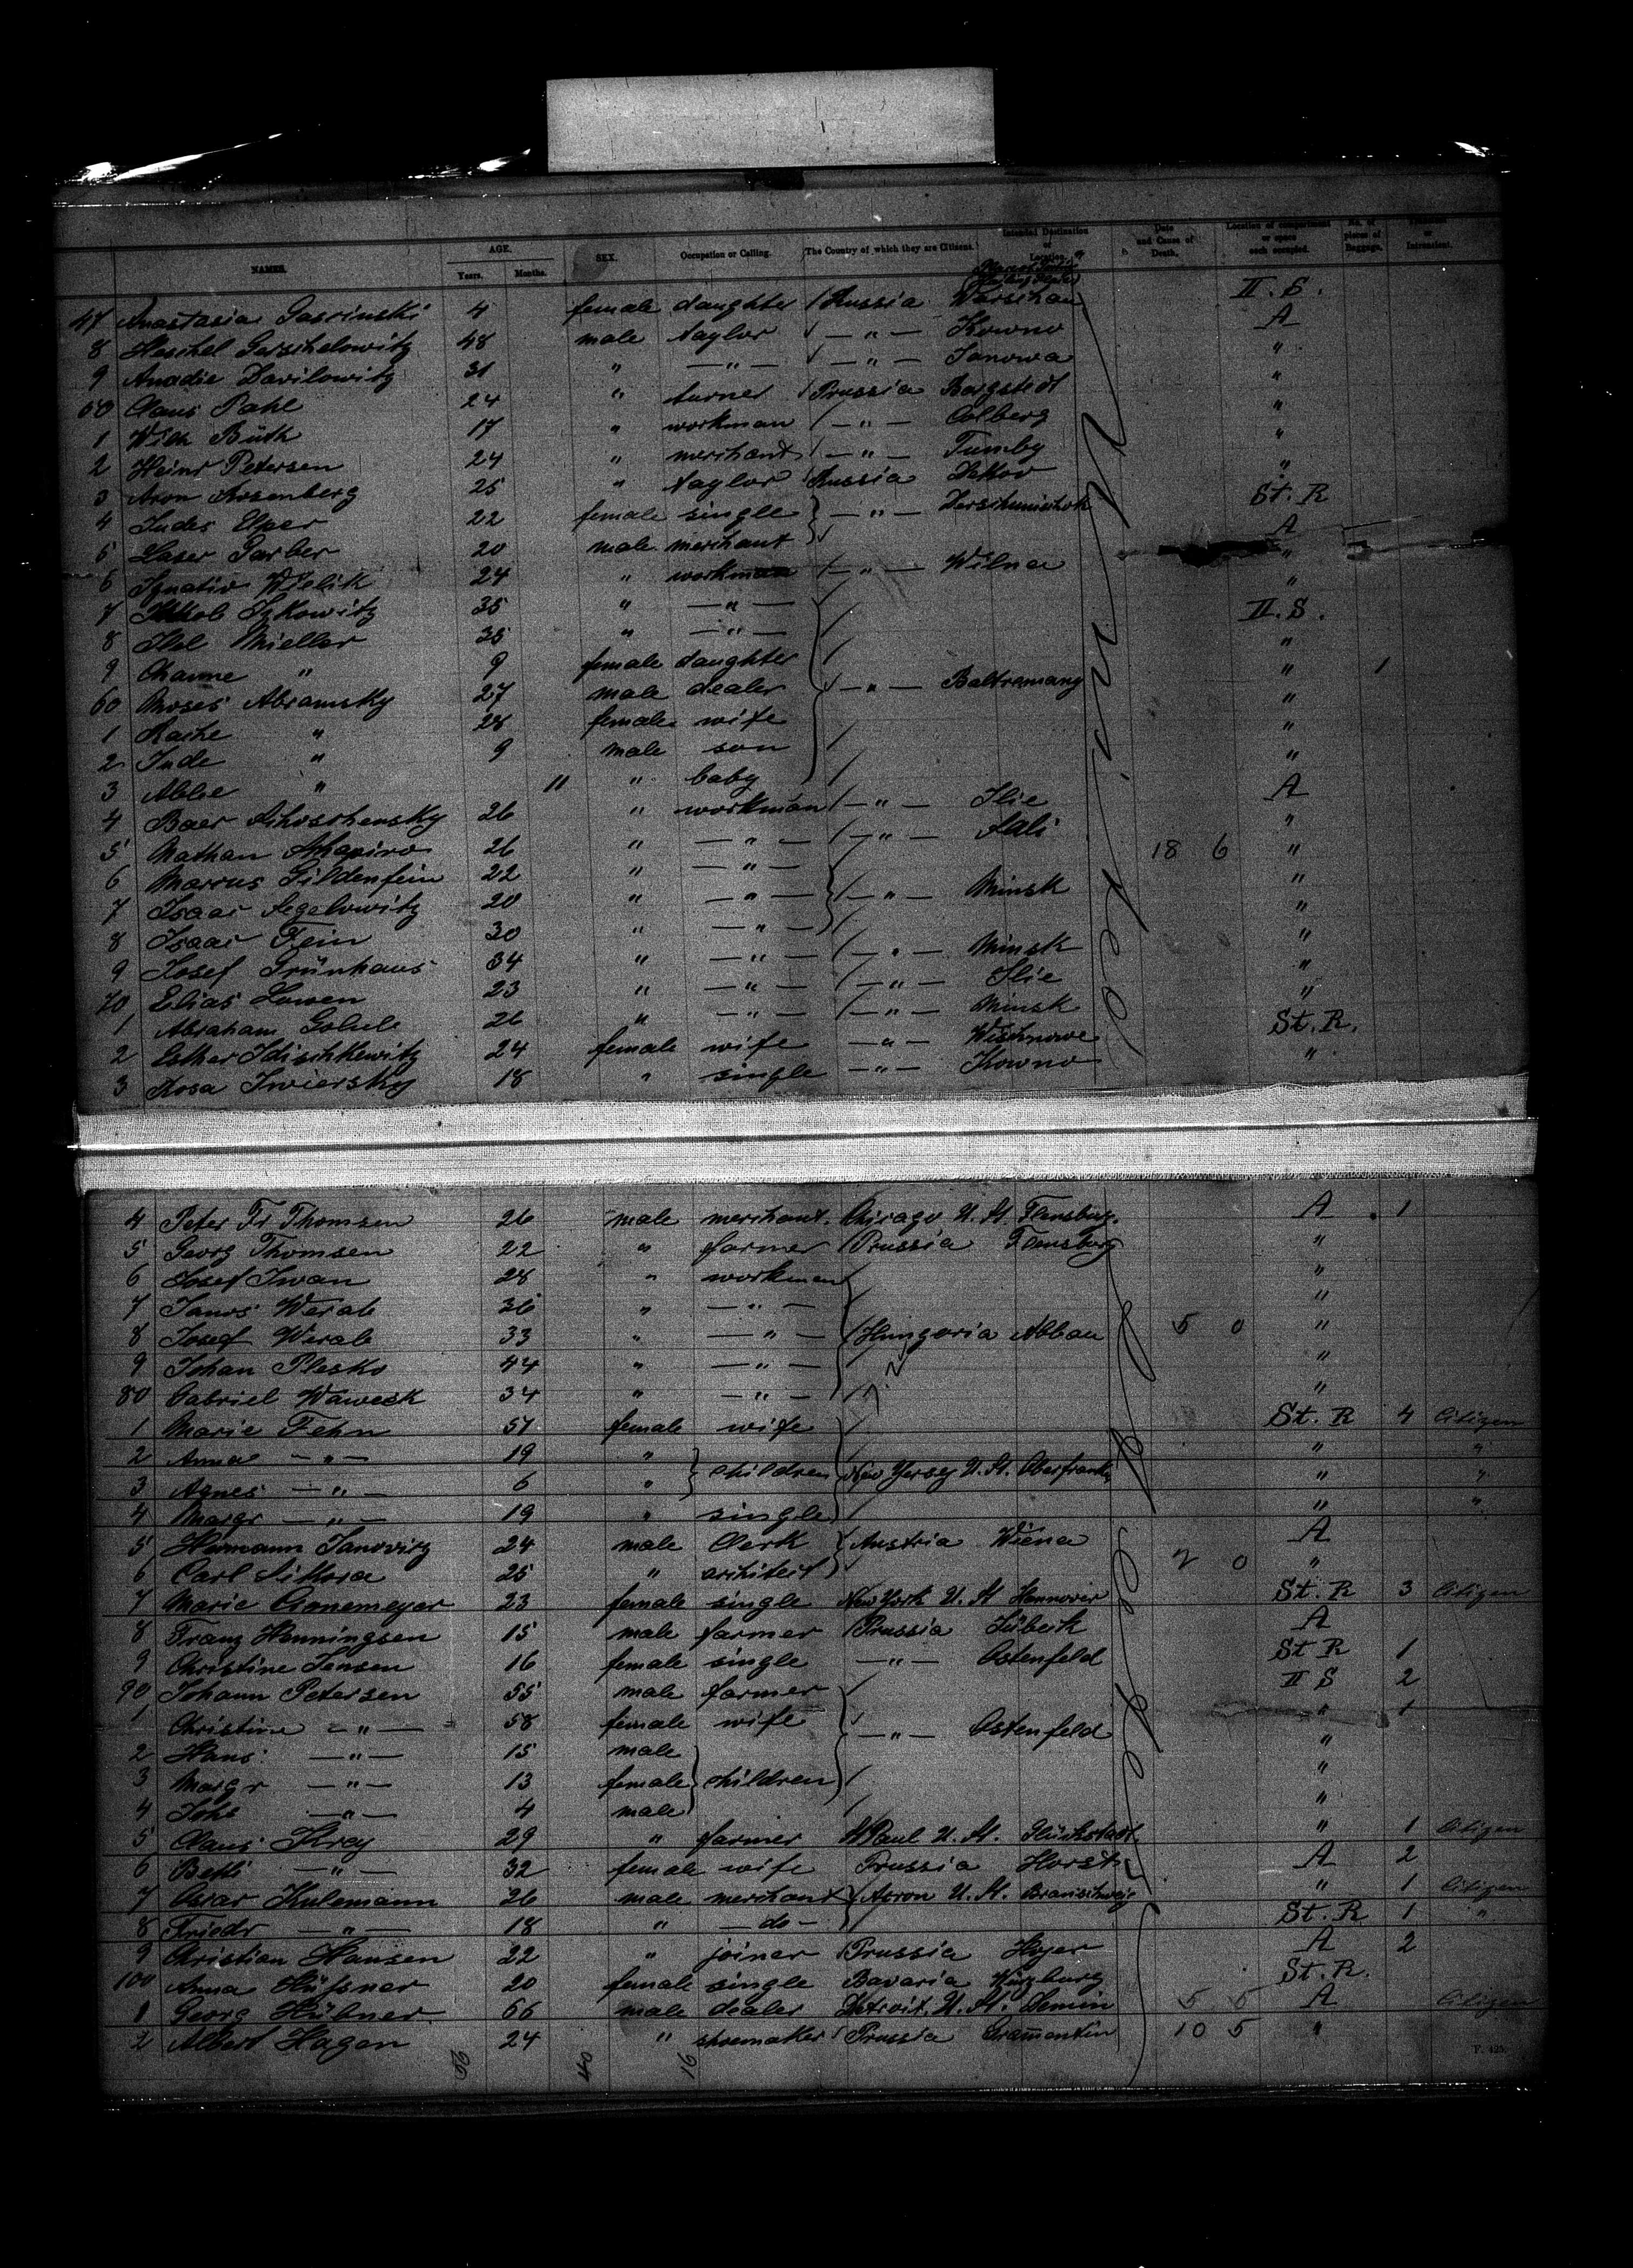 NAMES. AGE. Years. Months. SEX. Occupation or Calling. The Country of which they are Citizens. Intended Destination or Location. Date and Cause of Death. Location of compartment or space each occupied. No. of pieces of Baggage. or Intransient.
47 Anastasia female 4 daughter Russia Warschau II. S.
8 Heschel Gerschelowitz 48 male taylor — " — Kowno A
9 Davilowitz 31 " — " — — " — Janowa "
50 Claus Pahl 24 " turner Prussia Borgstedt "
1 Wilh Büth 17 " workman — " — Colberg "
2 Heinr Petersen 24 " merchant — " — Tumby "
3 Aron Rosenberg 25 " taylor Russia "
4 Judes 22 female single — " — St. R
5 Laser Garber 20 male merchant A
6 Ignativ Wielik 24 " workman — " — Wilna "
7 Jakob Izkowitz 35 " — " — "
8 Mieller 35 " — " — II. S.
9 Channe " 9 female daughter "
60 Moses Abramsky 27 male dealer — " — Baltremang " 1
1 " 28 female wife "
2 Jude " 9 male son "
3 Abbe " 11 " baby "
4 Baer 26 " workman — " — Ilie A
5 Nathan Schapiro 26 " — " — — " — "
6 Marcus Gildenfein 22 " — " — 18 6 "
7 Isaac Segelowitz 20 " — " — — " — Minsk "
8 Isaac Fein 30 " — " — "
9 Josef Grünhaus 34 " — " — — " — Minsk "
70 Elias Lowen 23 " — " — — " — Ilie "
1 Abraham 26 " — " — — " — Minsk "
2 Esther Idischkewitz 24 female wife — " — Wischnowe St. R.
3 Rosa 18 " single — " — Kowno "
4 Peter Fr Thomsen 26 male merchant. Chicago U. St. Flensburg. A 1
5 Georg Thomsen 22 " farmer Prussia Flensburg "
6 Josef Iwan 28 " workman "
7 Janos Werab 36 " — " — "
8 Josef Werab 33 " — " — Hungaria Abbau 5 0 "
9 Johan Plesko 44 " — " — "
80 Gabriel Waweck 34 " — " — "
1 Marie Fehn 51 female wife St. R 4 Citizen
2 Anna — " — 19 " children New Yersey U. St. Oberfrank " "
3 Agnes — " — 6 " " "
4 Margr — " — 19 " single " "
5 Hermann Janovitz 24 male Clerk Austria Wiena A
6 Carl Sikora 25 " architect 2 0 "
7 Marie 23 female single New York U. St Hannover St. R 3 Citizen
8 Franz Henningsen 15 male farmer Prussia Lübeck A
9 Christine Jensen 16 female single — " — Ostenfeld St R 1
90 Johann Petersen 55 male farmer II S 2
1 Christine — " — 58 female wife — " — Ostenfeld " 1
2 Hans — " — 15 male children "
3 Margr — " — 13 female "
4 Johs — " — 4 male "
5 Claus Krey 29 " farmer St Paul U. St. Glückstadt " 1 Citizen
6 Betti — " — 32 female wife Prussia Horst A 2
7 Oscar Kulemann 26 male merchant U. St. Braunschweig " 1 Citizen
8 Friedr — " — 18 " — do — St. R 1 "
9 Christian Hansen 22 " joiner Prussia Hoyer A 2
100 Anna 20 female single Bavaria Würzburg St. R.
1 Georg Hübner 56 male dealer Detroit. U. St. Demin 5 5 A Citizen
2 Albert Hagen 24 " shoemaker Prussia Grammentin 10 5 "
40 16
F. 425.